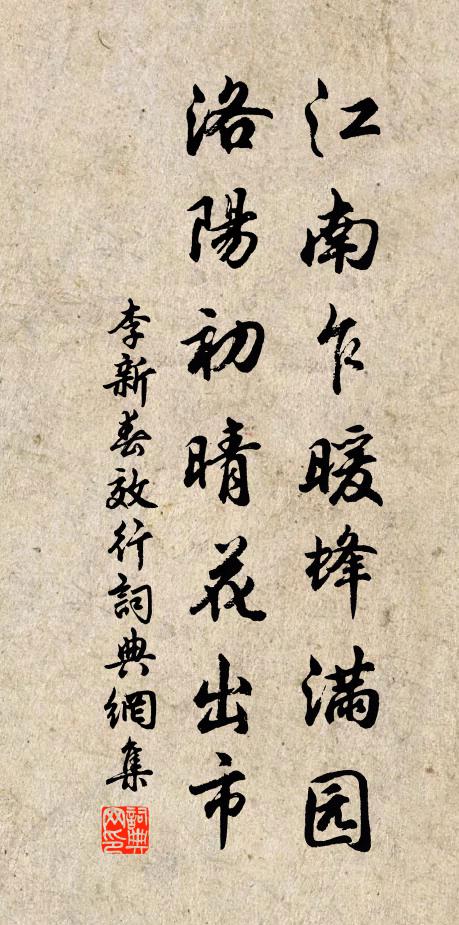 江南乍暖蜂满园
洛陽初晴花出市
李新春效行詞典網集
詞典网印